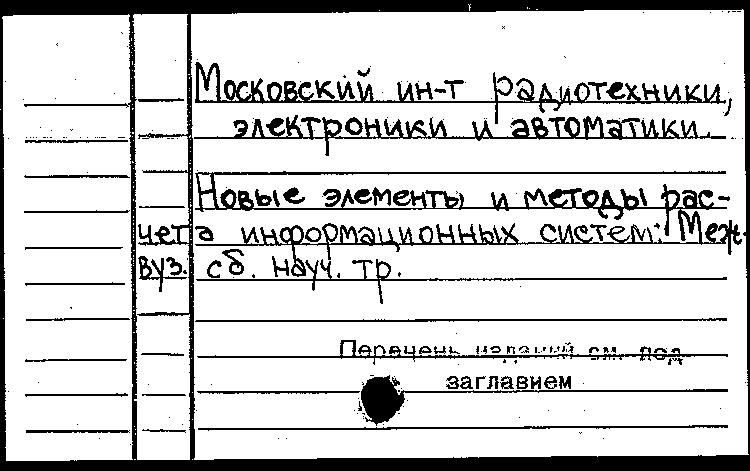 Московский ин-т радиотехники,
электроники и автоматики.
Новые элементы и методы рас-
чета информационных систем: Меж-
вуз. сб. науч. тр.
Перечень изданий см. под
заглавием